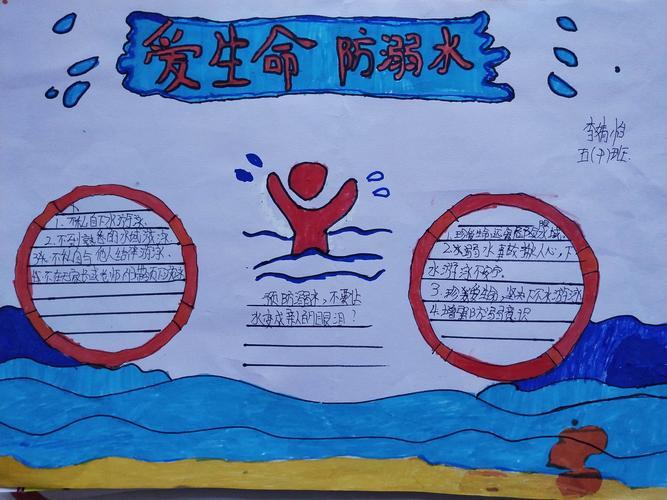 爱生命 防溺水
李婧怡
五(4)班
1、不私自下水游泳
2、不到熟悉的水域游泳
3、不私自与他人结伴游泳
4、不在无家长或老师带领下游泳
预防溺水,不要让
水变成亲人的眼泪?
1、珍爱生命远离危险水域
2、溺水事故揪人心,下
水游泳不
3、珍爱爱生命,坚决不下水游泳
4、增需防溺意识